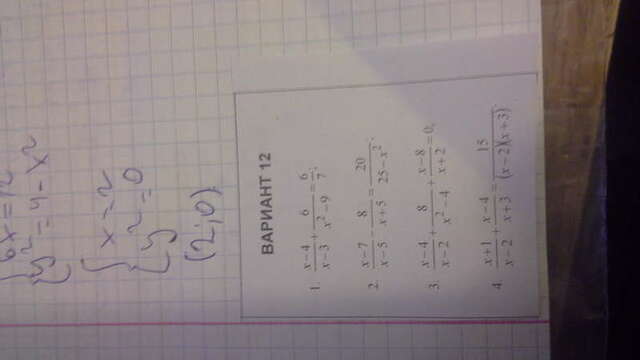 6x=12
y²=4-x²
x=2
y²=0
(2;0)
ВАРИАНТ 12
1. \frac{x-4}{x-3}+\frac{6}{x²-9}=\frac{6}{7};
2. \frac{x-7}{x-5}-\frac{8}{x+5}=\frac{20}{25-x²};
3. \frac{x-4}{x-2}+\frac{8}{x²-4}+\frac{x-8}{x+2}=0;
4. \frac{x+1}{x-2}+\frac{x-4}{x+3}=\frac{15}{(x-2)(x+3)}.